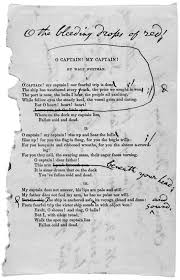 O the bleeding drops of red!
O CAPTAIN! MY CAPTAIN!
BY WALT WHITMAN.
I.
O CAPTAIN! my captain! our fearful trip is done!
The ship has weathered every wrack, the prize we sought is won.
The port is near, the bells I hear, the people all exulting,
While follow eyes the steady keel, the vessel grim and daring.
But O heart! heart! heart!
Leave you not the little spot
Where on the deck my captain lies,
Fallen cold and dead.
II.
O captain! my captain! rise up and hear the bells!
Rise up! for you the flag is flung, for you the bugle trills:
For you bouquets and ribboned wreaths, for you the shores
For you they call, the swaying mass, their eager faces turning.
O captain! dear father!
This arm I push beneath you.
It is some dream that on the deck
You've fallen cold and dead.
Beneath your head;
III.
My captain does not answer, his lips are pale and still:
My father does not feel my arm, he has no pulse nor will.
the ship
From fearful trip the victor ship comes in with object won!
Exult, O shores! and ring, O bells!
But I, with silent tread,
Walk the spot my captain lies
Fallen cold and dead.
and
sound